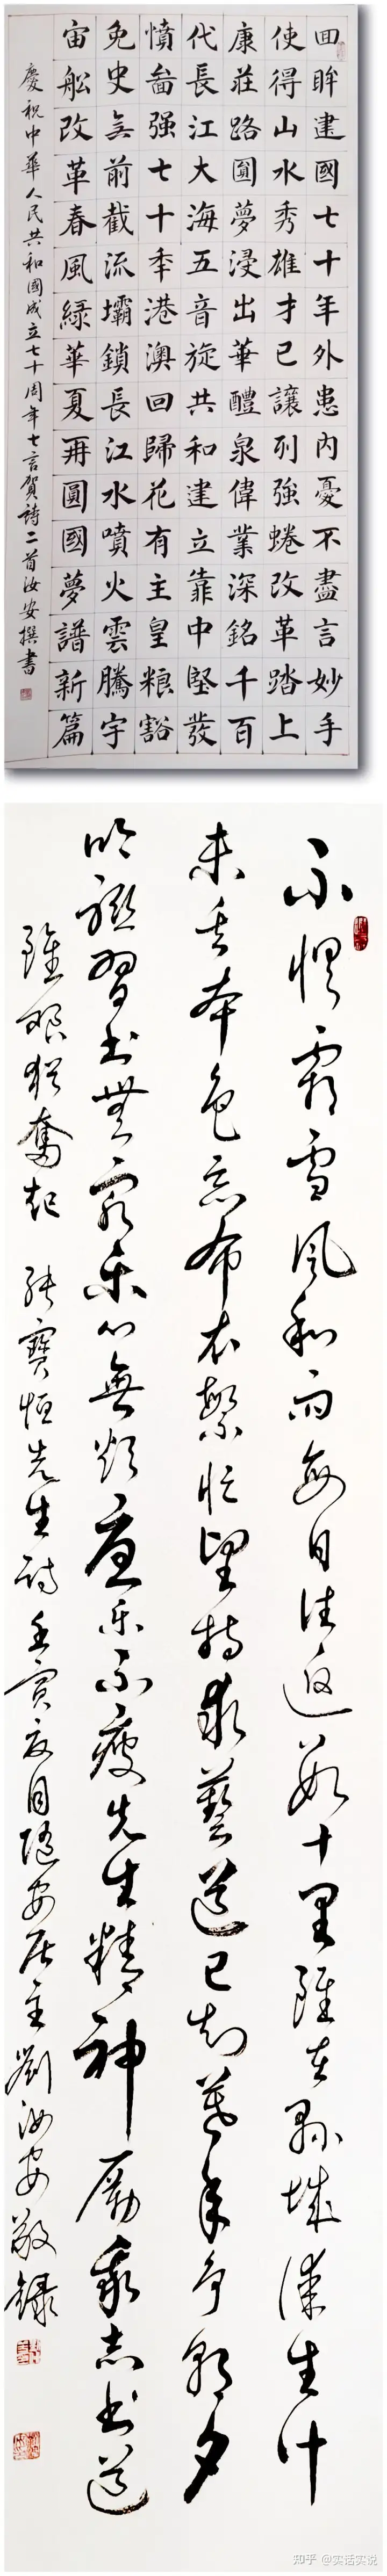 囬眸建國七十年外患内憂不盡言妙手
使得山水秀雄才已讓列強蜷改革踏上
康莊路圓夢浸出華醴泉偉業深銘千百
代長江大海五音旋共和建立靠中堅發
憤啚强七十年港澳回歸花有主皇粮豁
免史無前截流壩鎖長江水噴火雲騰宇
宙船改革春風緑華夏再圓國夢譜新篇
慶祝中華人民共和國成立七十周年七言賀詩二首汝安撰書
不惧霜雪風和雨每日往返數十里雖在縣城謀生計
未丢本色忘布衣繁忙求藝道已知年爭朝夕
吟聯習書無窮樂心無煩慮樂不疲先生精神勵我志書道
雖艰猶奮起 張寶恒先生詩壬寅夏月随安居主劉汝安敬錄
知乎 @实话实说